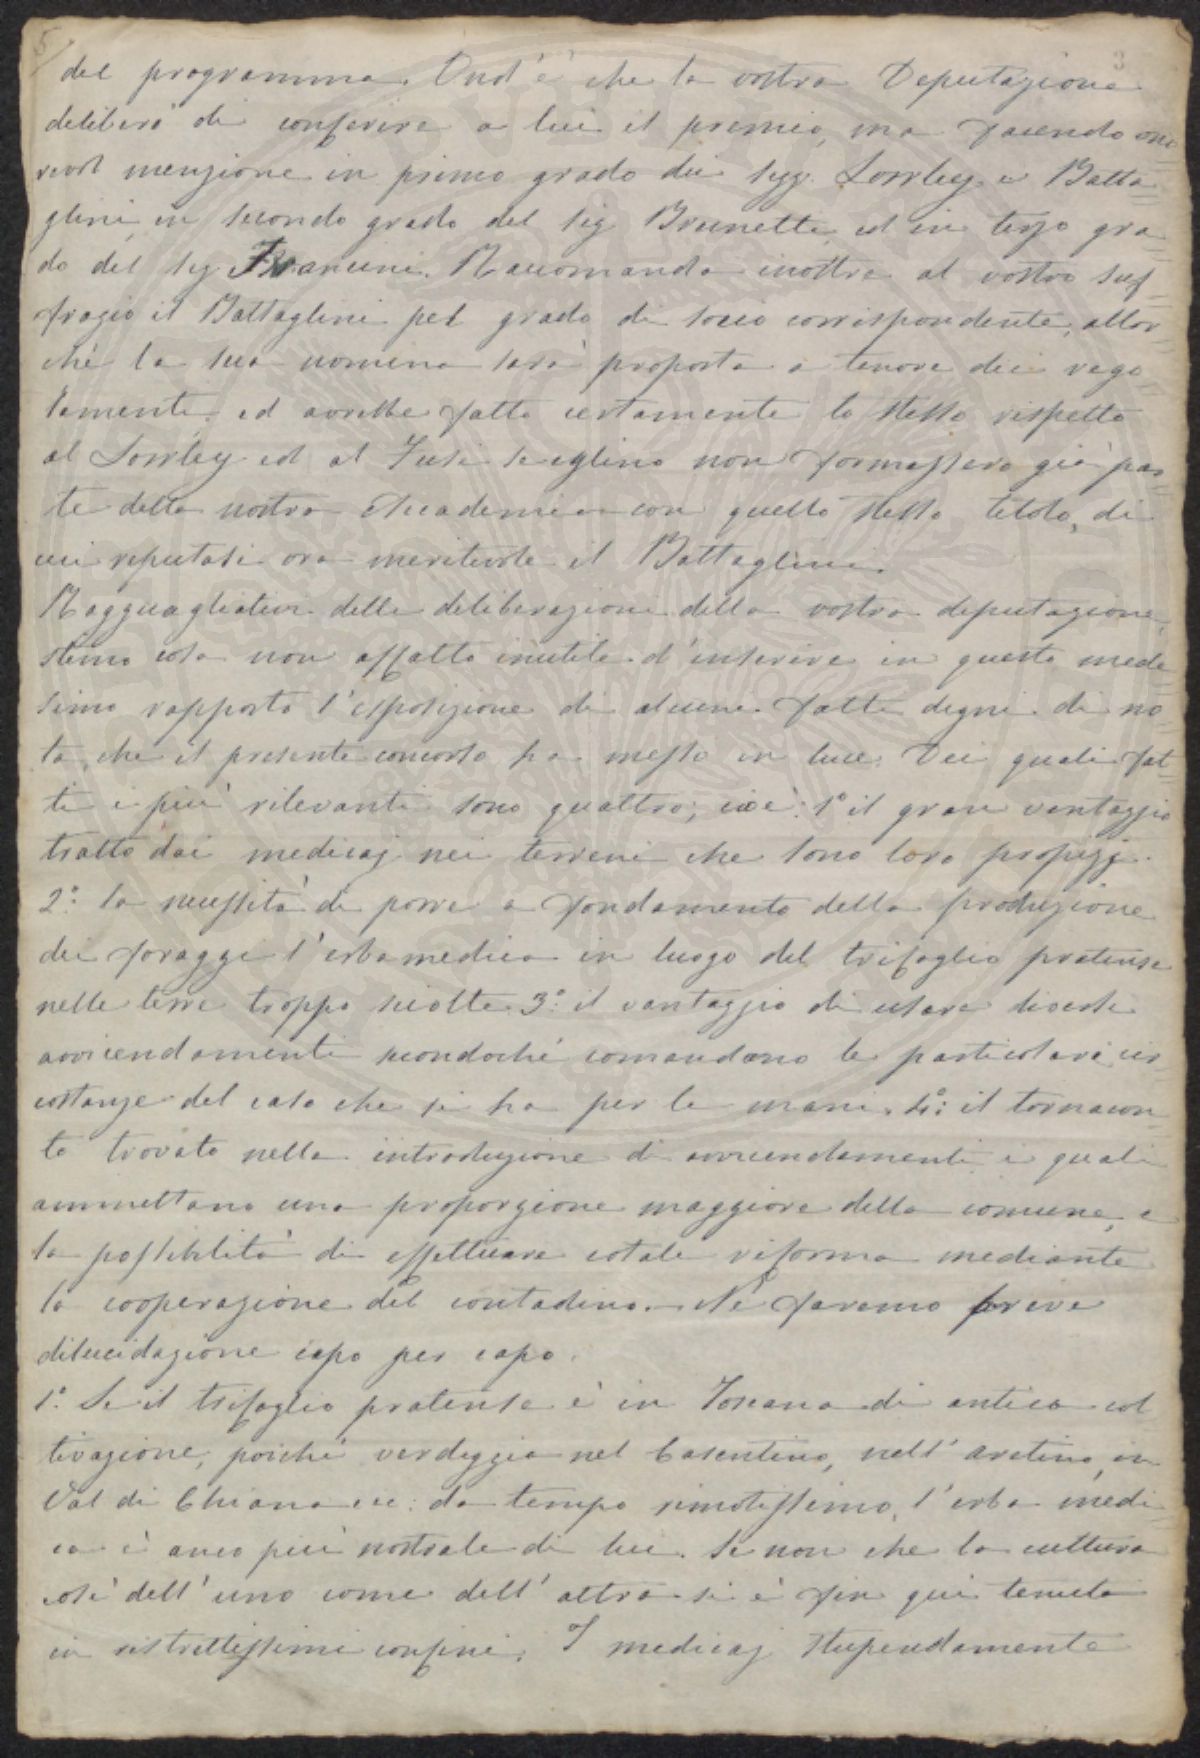 5/ 3
del programma. Ond'è che la vostra Deputazione
deliberò di conferire a lui il premio, ma facendo ono=
revol menzione in primo grado dei Sigg. Lawley e Batta=
glini, in secondo grado del Sig. Brunetti, ed in terzo gra=
do del Sig Francini. Raccomanda inoltre al vostro suf=
fragio il Battaglini pel grado di socio corrispondente, allor=
chè la sua nomina sarà proposta a tenore dei rego=
lamenti, ed avrebbe fatto certamente lo stesso rispetto
al Lawley ed al Tusi se eglino non formassero già par=
te della nostra Accademia con quello stesso titolo, di
cui reputasi ora meritevole il Battaglini.
Ragguagliativi delle deliberazioni della vostra deputazione,
stimo cosa non affatto inutile d'inserire in questo mede=
simo rapporto l'esposizione di alcuni fatti degni di no=
ta, che il presente concorso ha messo in luce. Dei quali fat=
ti i più rilevanti sono quattro; cioè: 1° il gran vantaggio
tratto dai medicaj nei terreni che sono loro propizj.
2°: la necessità di porre a fondamento della produzione
dei foraggi l'erba medica in luogo del trifoglio pratense
nelle terre troppo sciolte 3°: il vantaggio di usare diversi
avvicendamenti secondochè comandano le particolari cir=
costanze del caso che si ha per le mani. 4°: il tornacon=
to trovato nella introduzione di avvicendamenti i quali
ammettano una proporzione maggiore della comune, e
la possibilità di effettuare cotale riforma mediante
la cooperazione del contadino. Ne faremo breve
dilucidazione capo per capo.
1°. Se il trifoglio pratense è in Toscana di antica col
tivazione, poichè verdeggia nel Casentino, nell'aretino, in
Val di Chiana ec: da tempo rimotissimo, l'erba medi=
ca è anco più nostrale di lui. Se non che la cultura
così dell'uno come dell'altra si è fin quì tenuta
in ristrettissimi confini. I medicaj stupendamente